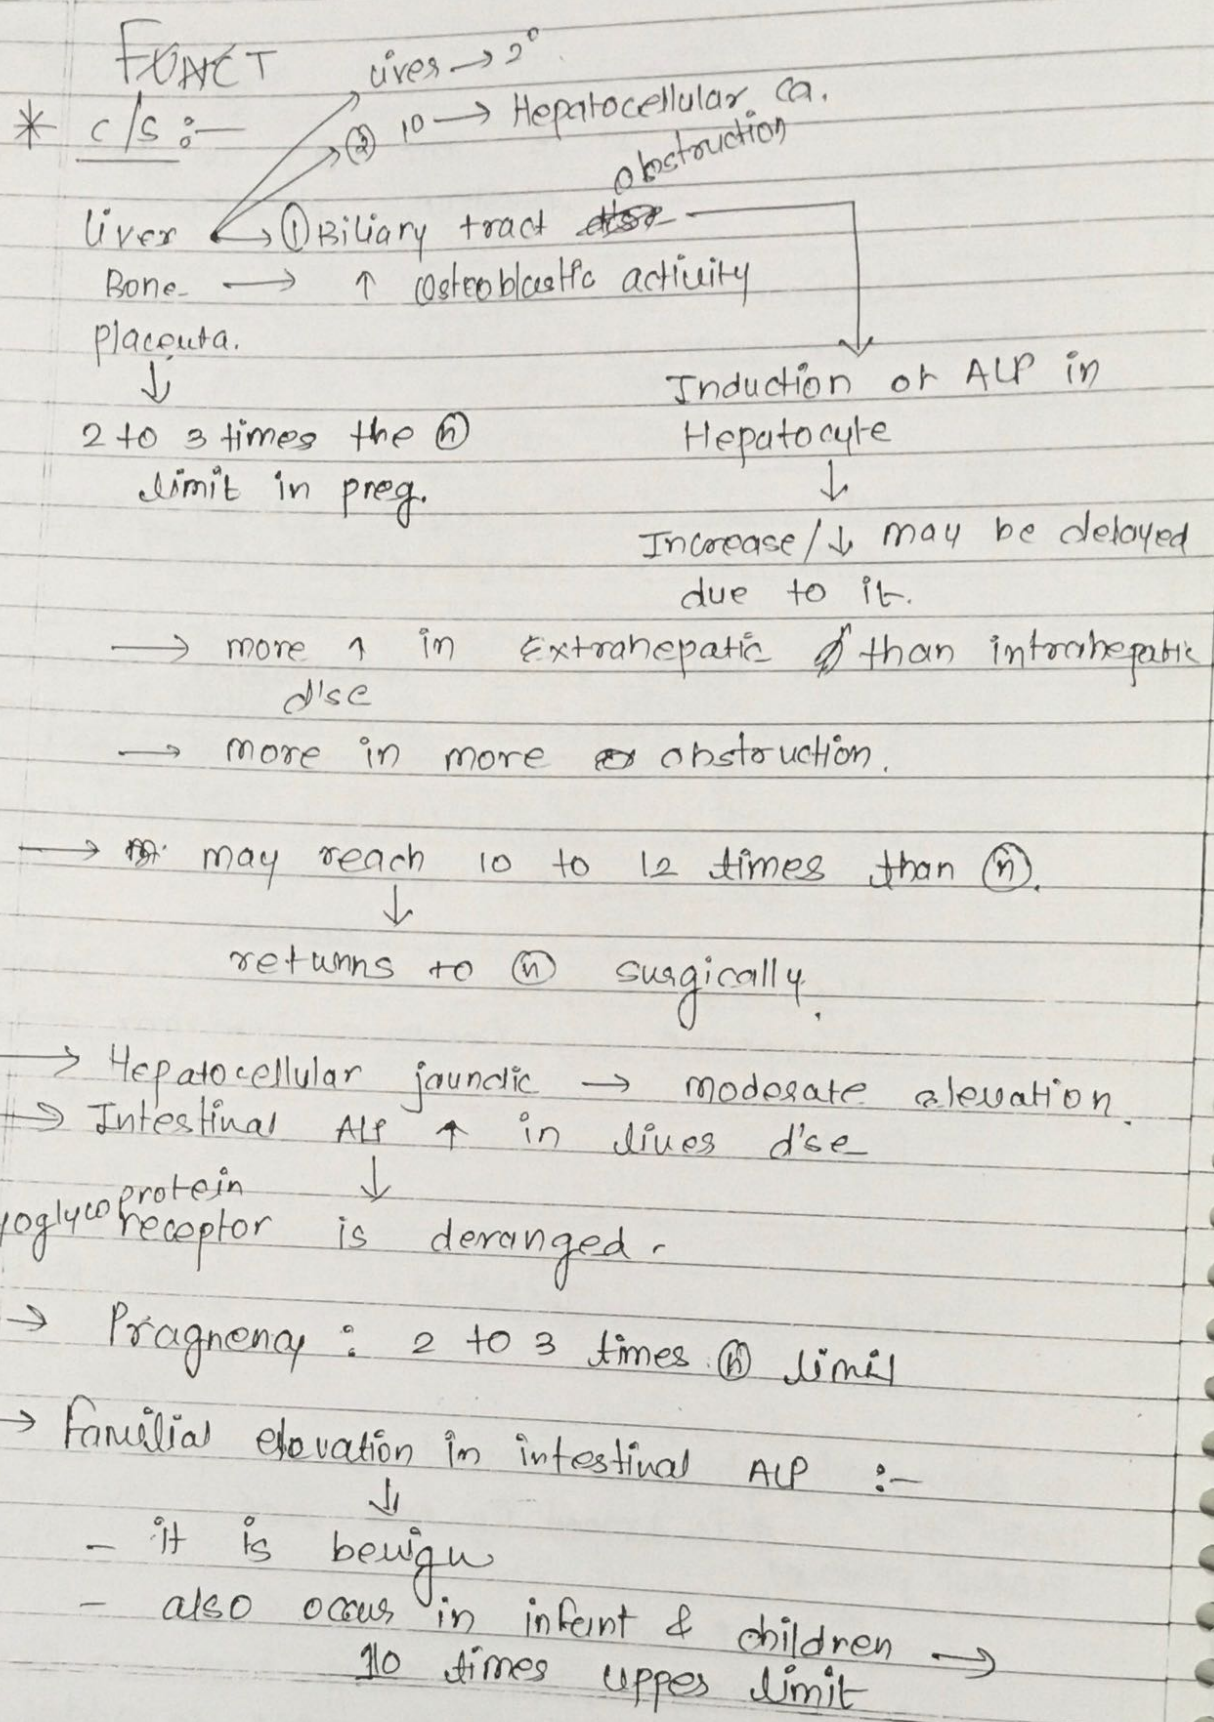 FUNCT
liver → 2°
* c/s :-
② 1° → Hepatocellular ca.
obstruction
liver → ① Biliary tract
Bone → ↑ osteoblastic activity
placenta.
↓
2 to 3 times the ⓝ
limit in preg.
Induction of ALP in
Hepatocyte
↓
Increase/↓ may be delayed
due to it.
→ more ↑ in Extrahepatic than intrahepatic
d'se
→ more in more obstruction.
→ may reach 10 to 12 times than ⓝ.
↓
returns to ⓝ surgically.
→ Hepatocellular jaundic → moderate elevation.
→ Intestinal ALP ↑ in liver d'se
↓
protein
receptor is deranged.
→ Pragnency : 2 to 3 times ⓝ limit
→ Familial elevation in intestinal ALP :-
↓
- it is benign
- also occurs in infant & children →
10 times upper limit